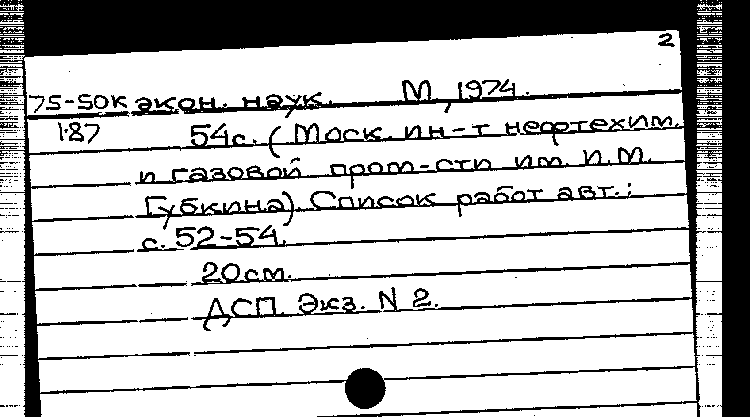 2
75-50к экон. наук. М, 1974.
1.87 54с. (Моск. ин-т нефтехим.
и газовой пром-сти им. И.М.
Губкина). Список работ авт.:
с. 52-54.
20см.
ДСП. Экз. N 2.